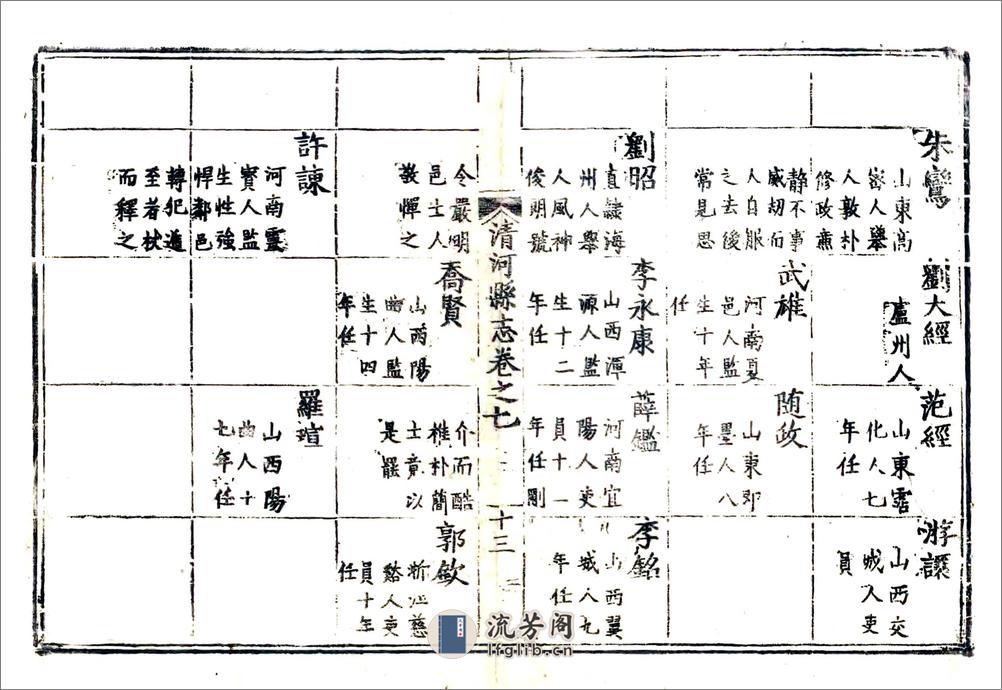 朱鸞
山東高
密人舉
人敦朴
修政肅
静不事
威刼而
人自服
之去後
常見思
劉昭
直隸海
州人舉
人風神
俊朗號
令嚴明
邑士人
敬憚之
許諫
河南靈
寳人監
生性強
悍鄰邑
轉犯過
至者杖
而釋之
劉大經
廬州人
武雄
河南夏
邑人監
生十年
任
李永康
山西渾
源人監
生十二
年任
喬賢
山西陽
曲人監
生十四
年任
范經
山東霑
化人七
年任
随政
山東即
墨人八
年任
薛鑑
河南宜
陽人吏
員十一
年任剛
介而酷
椎朴簡
士竟以
是罷
羅瑄
山西陽
曲人十
七年任
游
山西交
城人吏
員
李銘
山西翼
城人九
年任
郭欽
浙江慈
谿人吏
員十年
任
清河縣志卷之七
十三
流芳阁
lfglib.cn